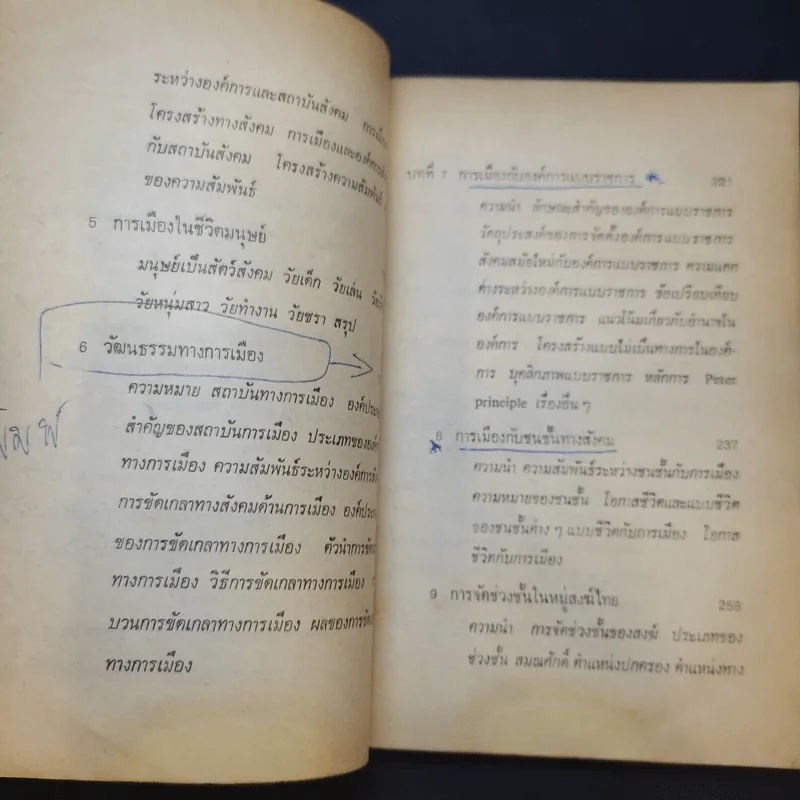 ระหว่างองค์การและสถาบันสังคม
โครงสร้างทางสังคม การเมืองและองค์การ
กับสถาบันสังคม โครงสร้างความสัมพันธ์
ของความสัมพันธ์
5 การเมืองในชีวิตมนุษย์
มนุษย์เป็นสัตว์สังคม วัยเด็ก วัยเล่น
วัยหนุ่มสาว วัยทำงาน วัยชรา สรุป
6 วัฒนธรรมทางการเมือง
ความหมาย สถาบันทางการเมือง
สำคัญของสถาบันการเมือง ประเภทของ
ทางการเมือง ความสัมพันธ์ระหว่างองค์การ
การขัดเกลาทางสังคมด้านการเมือง
ของการขัดเกลาทางการเมือง ตัวนำการ
ทางการเมือง วิธีการขัดเกลาทางการเมือง
บวนการขัดเกลาทางการเมือง ผลของการ
ทางการเมือง
บทที่ 7 การเมืองกับองค์การแบบราชการ 221
ความนำ ลักษณะสำคัญขององค์การแบบราชการ
วัตถุประสงค์ของการจัดตั้งองค์การแบบราชการ
สังคมสมัยใหม่กับองค์การแบบราชการ ความแตก
ต่างระหว่างองค์การแบบราชการ ข้อเปรียบเทียบ
องค์การแบบราชการ แนวโน้มเกี่ยวกับอำนาจใน
องค์การ โครงสร้างแบบไม่เป็นทางการในองค์-
การ บุคลิกภาพแบบราชการ หลักการ Peter
principle เรื่องอื่น ๆ
8 การเมืองกับชนชั้นทางสังคม 237
ความนำ ความสัมพันธ์ระหว่างชนชั้นกับการเมือง
ความหมายของชนชั้น โอกาสชีวิตและแบบชีวิต
ของชนชั้นต่าง ๆ แบบชีวิตกับการเมือง โอกาส
ชีวิตกับการเมือง
9 การจัดช่วงชั้นในหมู่สงฆ์ไทย 258
ความนำ การจัดช่วงชั้นของสงฆ์ ประเภทของ
ช่วงชั้น สมณศักดิ์ ตำแหน่งปกครอง ตำแหน่งทาง